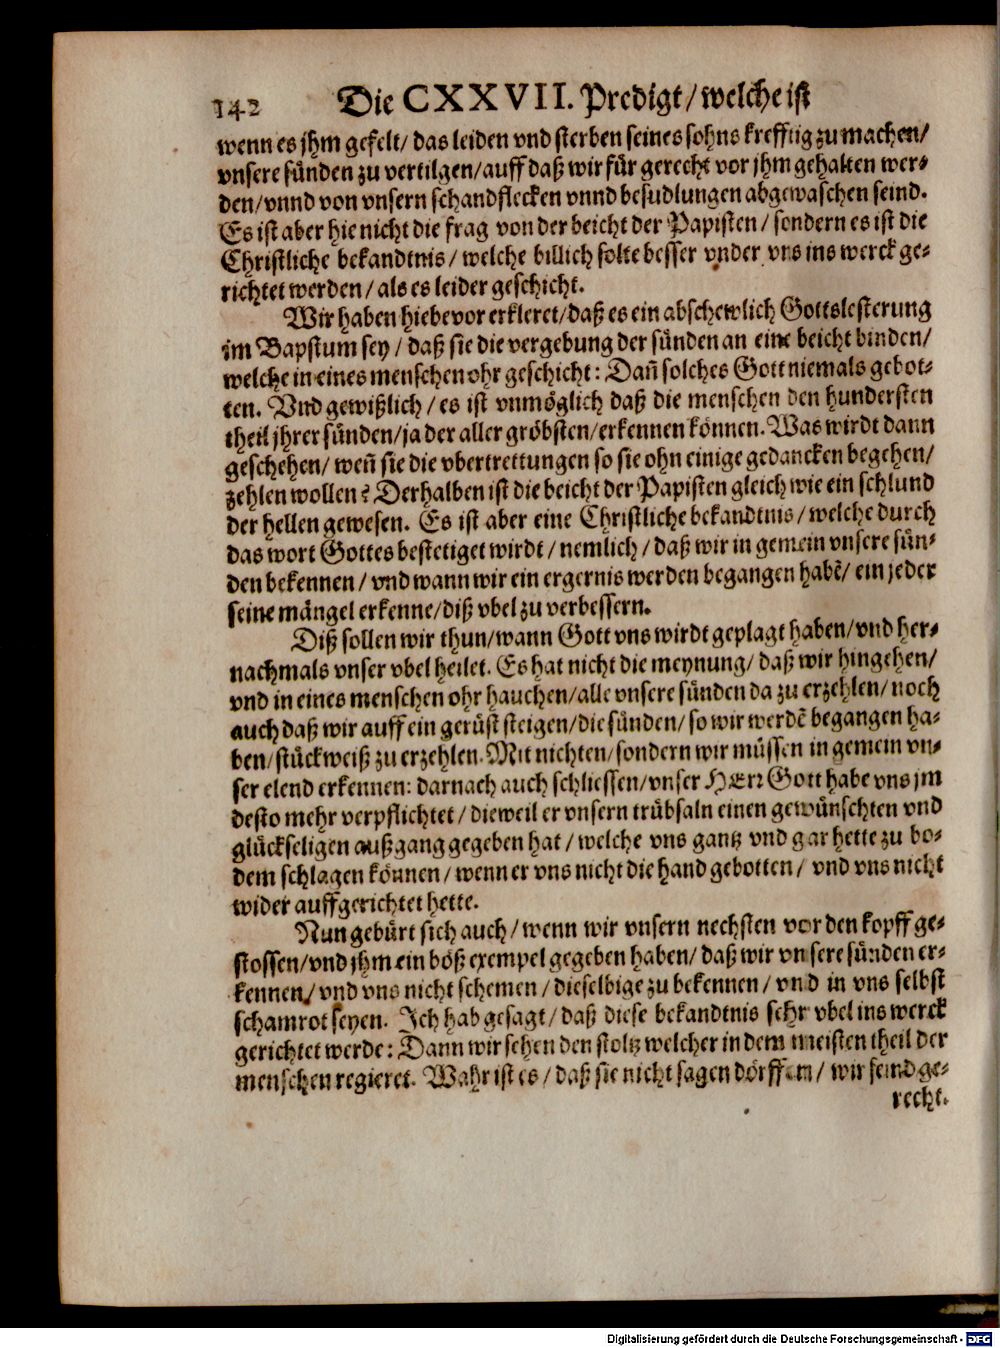 142 Die CXXVII. Predigt/welche ist
wenn es jhm gefelt/das leiden vnd sterben seines sohns krefftig zu machen/
vnsere sünden zu vertilgen/auff daß wir für gerecht vor jhm gehalten wer-
den/vnnd von vnsern schandflecken vnnd besudlungen abgewaschen seind.
Es ist aber hie nicht die frag von der beicht der Papisten/sondern es ist die
Christliche bekandtnis/welche billich solte besser vnder vns ins werck ge-
richtet werden/als es leider geschicht.
Wir haben hiebevor erkleret/daß es ein abschewlich Gottslesterung
im Bapstum sey/daß sie die vergebung der sünden an eine beicht binden/
welche in eines menschen ohr geschicht: Dañ solches Gott niemals gebot-
ten. Vnd gewißlich/es ist vnmöglich daß die menschen den hundersten
theil jhrer sünden/ja der aller gröbsten/erkennen können. Was wirdt dann
geschehen/weñ sie die vbertrettungen so sie ohn einige gedancken begehen/
zehlen wollen? Derhalben ist die beicht der Papisten gleich wie ein schlund
der hellen gewesen. Es ist aber eine Christliche bekandtnis/welche durch
das wort Gottes bestetiget wirdt/nemlich/daß wir in gemein vnsere sün-
den bekennen/vnd wann wir ein ergernis werden begangen habẽ/ein jeder
seine mängel erkenne/diß vbel zu verbessern.
Diß sollen wir thun/wann Gott vns wirdt geplagt haben/vnd her-
nachmals vnser vbel heilet. Es hat nicht die meynung/daß wir hingehen/
vnd in eines menschen ohr hauchen/alle vnsere sünden da zu erzehlen/noch
auch daß wir auff ein gerüst steigen/die sünden/so wir werdẽ begangen ha-
ben/stückweiß zu erzehlen. Mit nichten/sondern wir müssen in gemein vn-
ser elend erkennen: darnach auch schliessen/vnser HErr Gott habe vns jm
desto mehr verpflichtet/dieweil er vnsern trübsaln einen gewünschten vnd
glückseligen außgang gegeben hat/welche vns gantz vnd gar hette zu bo-
dem schlagen können/wenn er vns nicht die hand gebotten/vnd vns nicht
wider auffgerichtet hette.
Nun gebürt sich auch/wenn wir vnsern nechsten vor den kopff ge-
stossen/vnd jhm ein böß exempel gegeben haben/daß wir vnsere sünden er-
kennen/vnd vns nicht schemen/dieselbige zu bekennen/vnd in vns selbst
schamrot seyen. Ich hab gesagt/daß diese bekandtnis sehr vbel ins werck
gerichtet werde: Dann wir sehen den stoltz welcher in dem meisten theil der
menschen regieret. Wahr ist es/daß sie nicht sagen dörffen/wir seind ge-
recht.
Digitalisierung gefördert durch die Deutsche Forschungsgemeinschaft - DFG